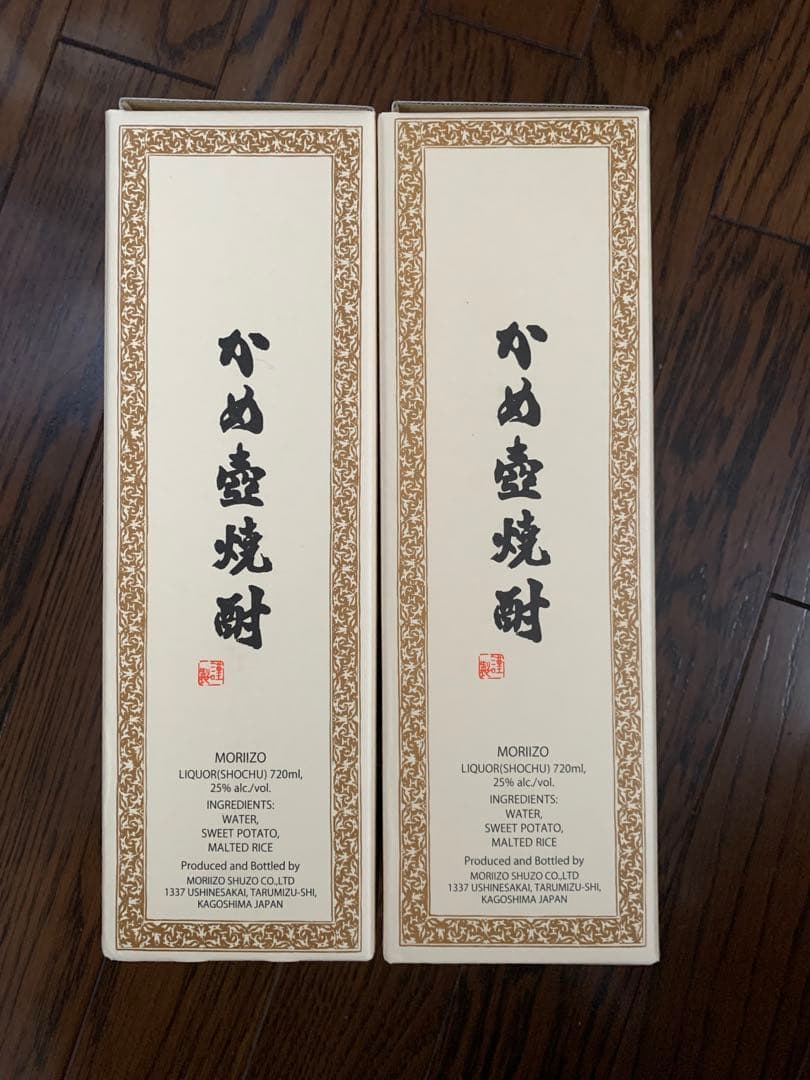 かめ壺焼酎
謹製
MORIIZO
LIQUOR(SHOCHU) 720ml,
25% alc./vol.
INGREDIENTS:
WATER,
SWEET POTATO,
MALTED RICE
Produced and Bottled by
MORIIZO SHUZO CO.,LTD
1337 USHINESAKAI, TARUMIZU-SHI,
KAGOSHIMA JAPAN
かめ壺焼酎
謹製
MORIIZO
LIQUOR(SHOCHU) 720ml,
25% alc./vol.
INGREDIENTS:
WATER,
SWEET POTATO,
MALTED RICE
Produced and Bottled by
MORIIZO SHUZO CO.,LTD
1337 USHINESAKAI, TARUMIZU-SHI,
KAGOSHIMA JAPAN